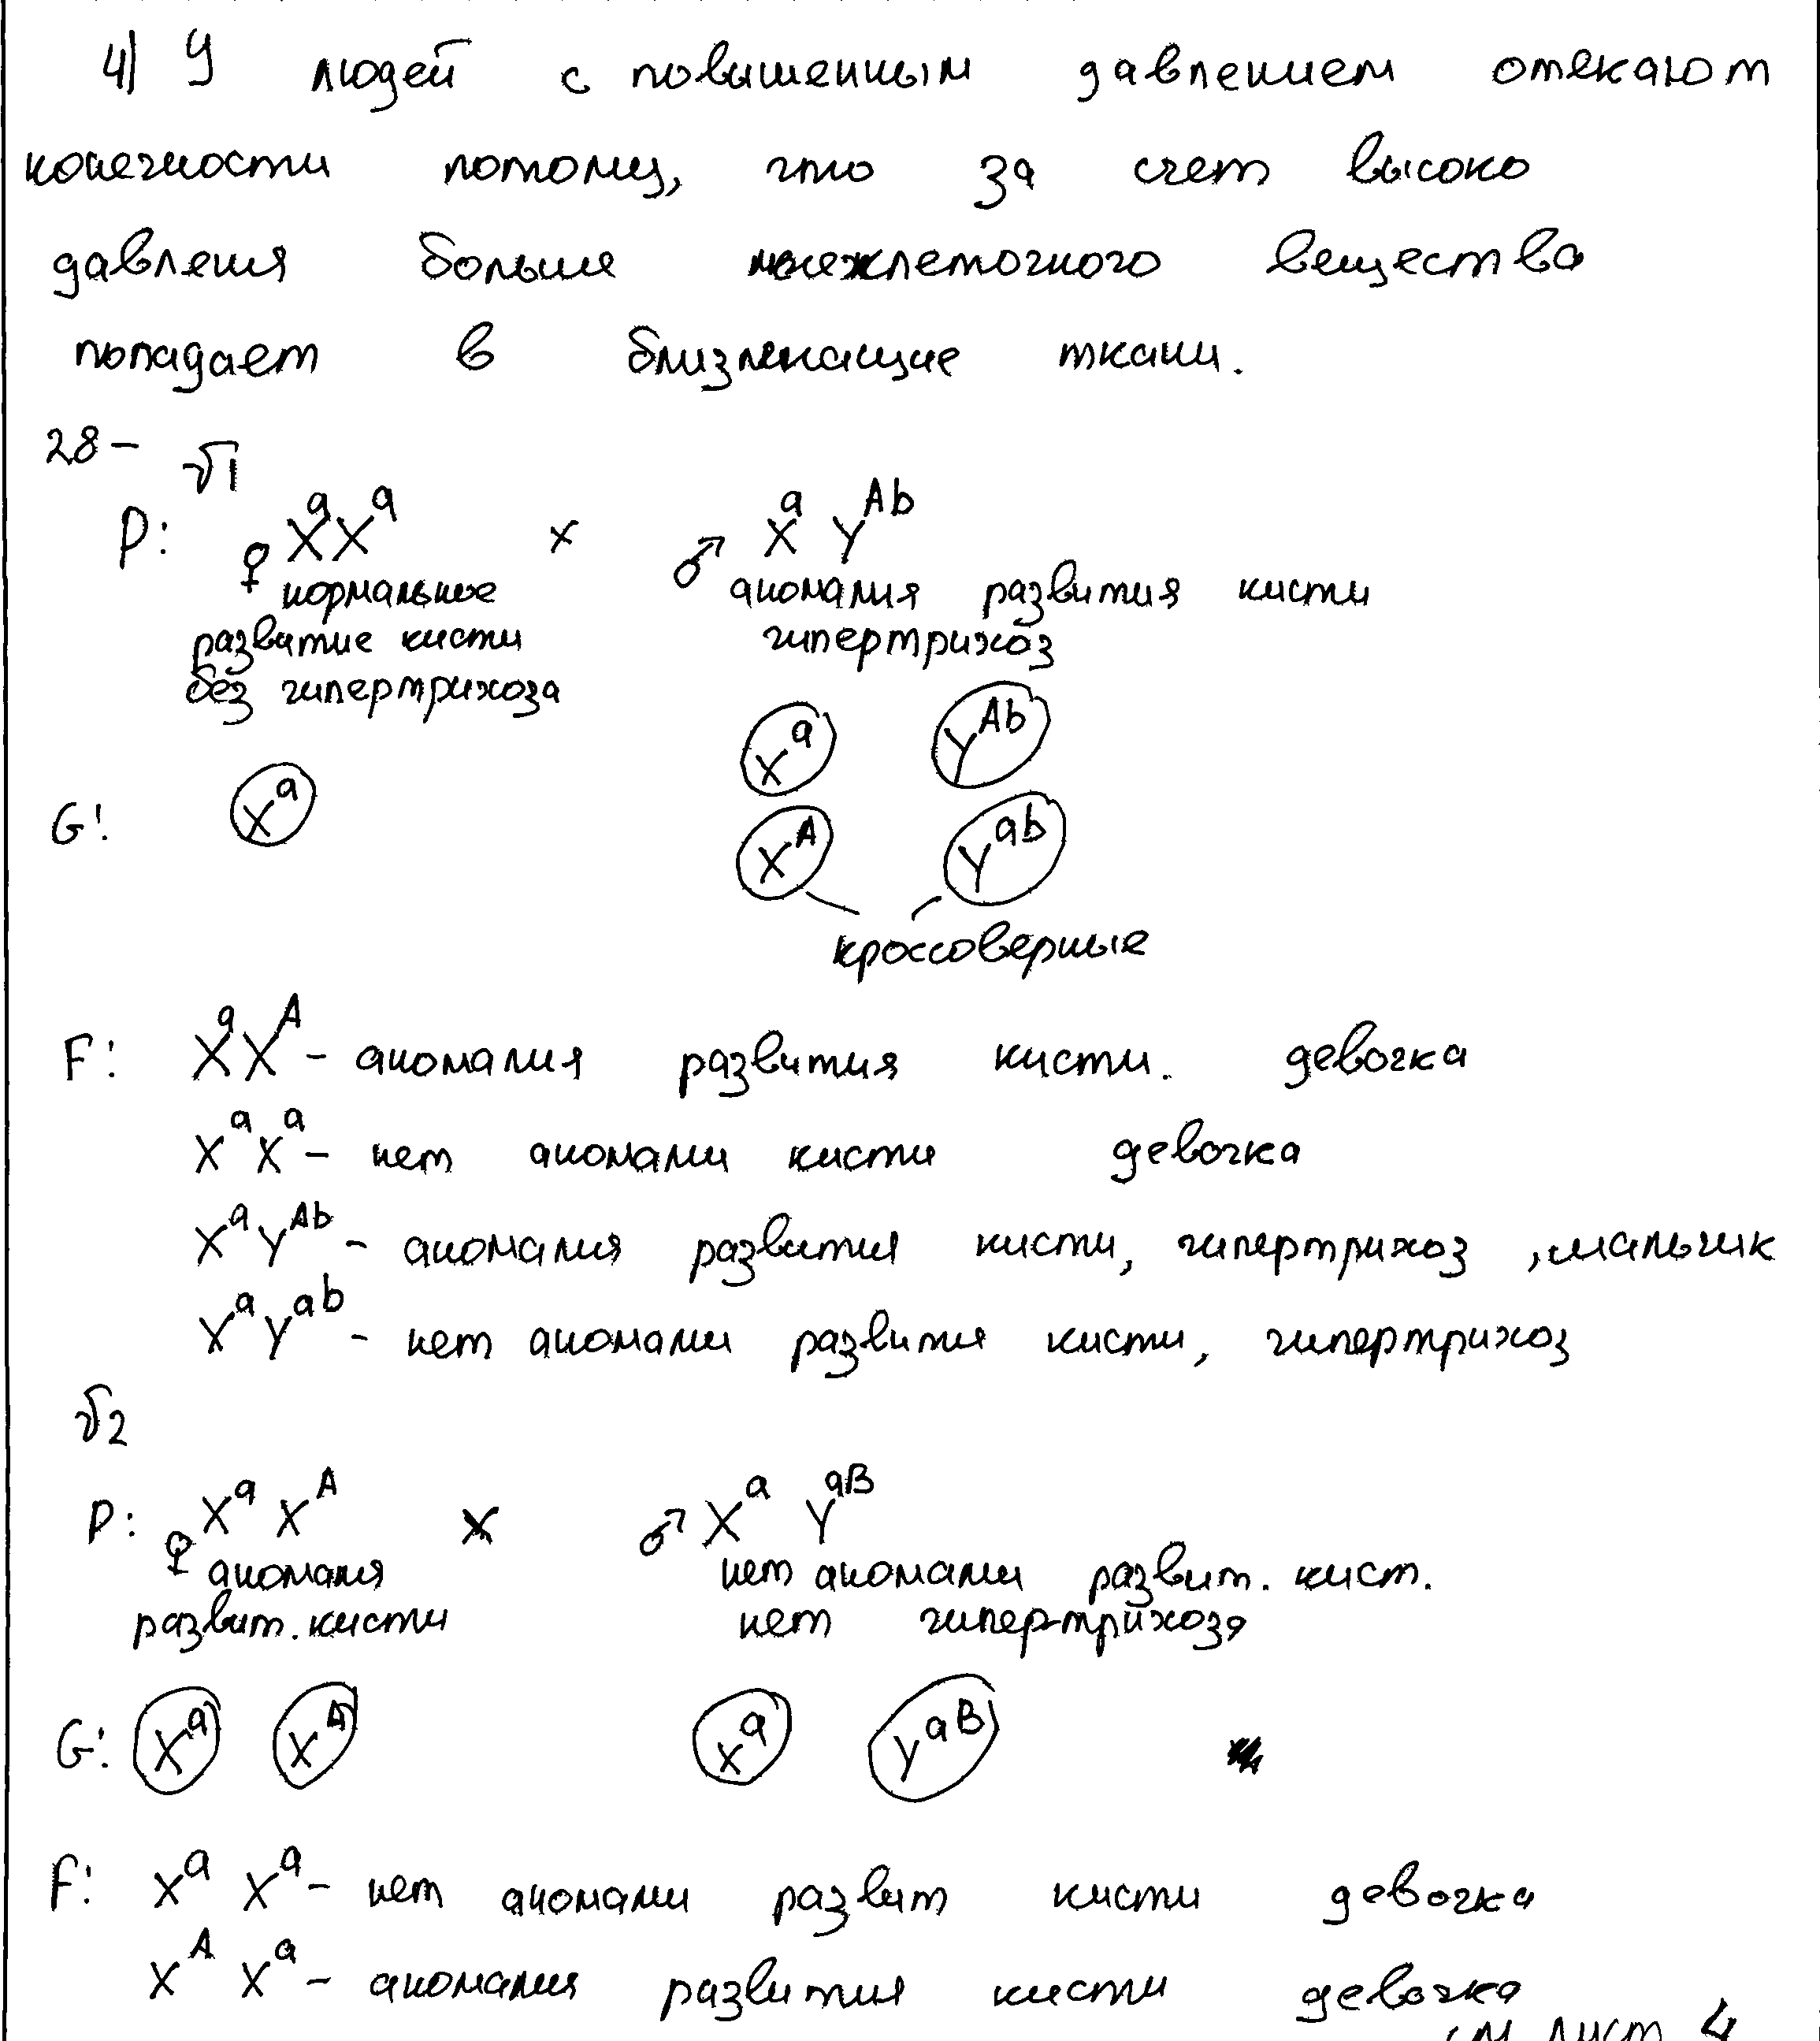 4) У людей с повышенным давлением отекают
конечности потому, что за счет высоко
давления больше межклеточного вещества
попадает в близлежащие ткани.
28- √1
P: ♀ XᵃXᵃ x ♂ Xᵃ Yᴬᵇ
нормальное аномалия развития кисти
развитие кисти гипертрихоз
без гипертрихоза
Xᵃ Yᴬᵇ
G: Xᵃ Xᴬ Yᵃᵇ
кроссоверные
F: XᵃXᴬ - аномалия развития кисти. девочка
XᵃXᵃ - нет аномали кисти девочка
XᵃYᴬᵇ - аномалия развития кисти, гипертрихоз, мальчик
XᵃYᵃᵇ - нет аномали развития кисти, гипертрихоз
√2
P: ♀ Xᵃ Xᴬ x ♂ Xᵃ Yᵃᴮ
аномалия нет аномали развит. кист.
развит. кисти нет гипертрихоза
G: Xᵃ Xᴬ Xᵃ Yᵃᴮ
F: Xᵃ Xᵃ - нет аномали развит кисти девочка
Xᴬ Xᵃ - аномалия развития кисти девочка
см лист 4